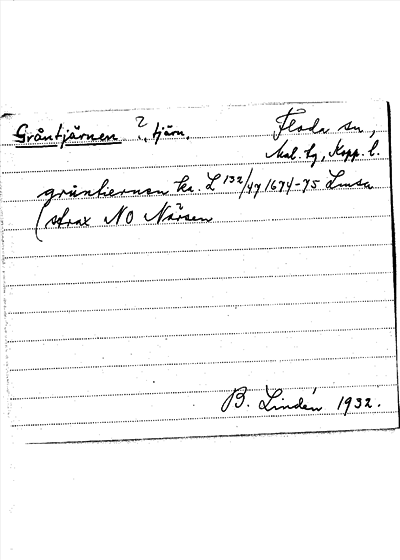 Gråntjärnen ? tjärn.
Floda sn,
Nal. tg, Kopp. l.
gråntiernen ka. L 132/47 1674-75 Lmsa
(strax NO Närsen
B. Lindén 1932.